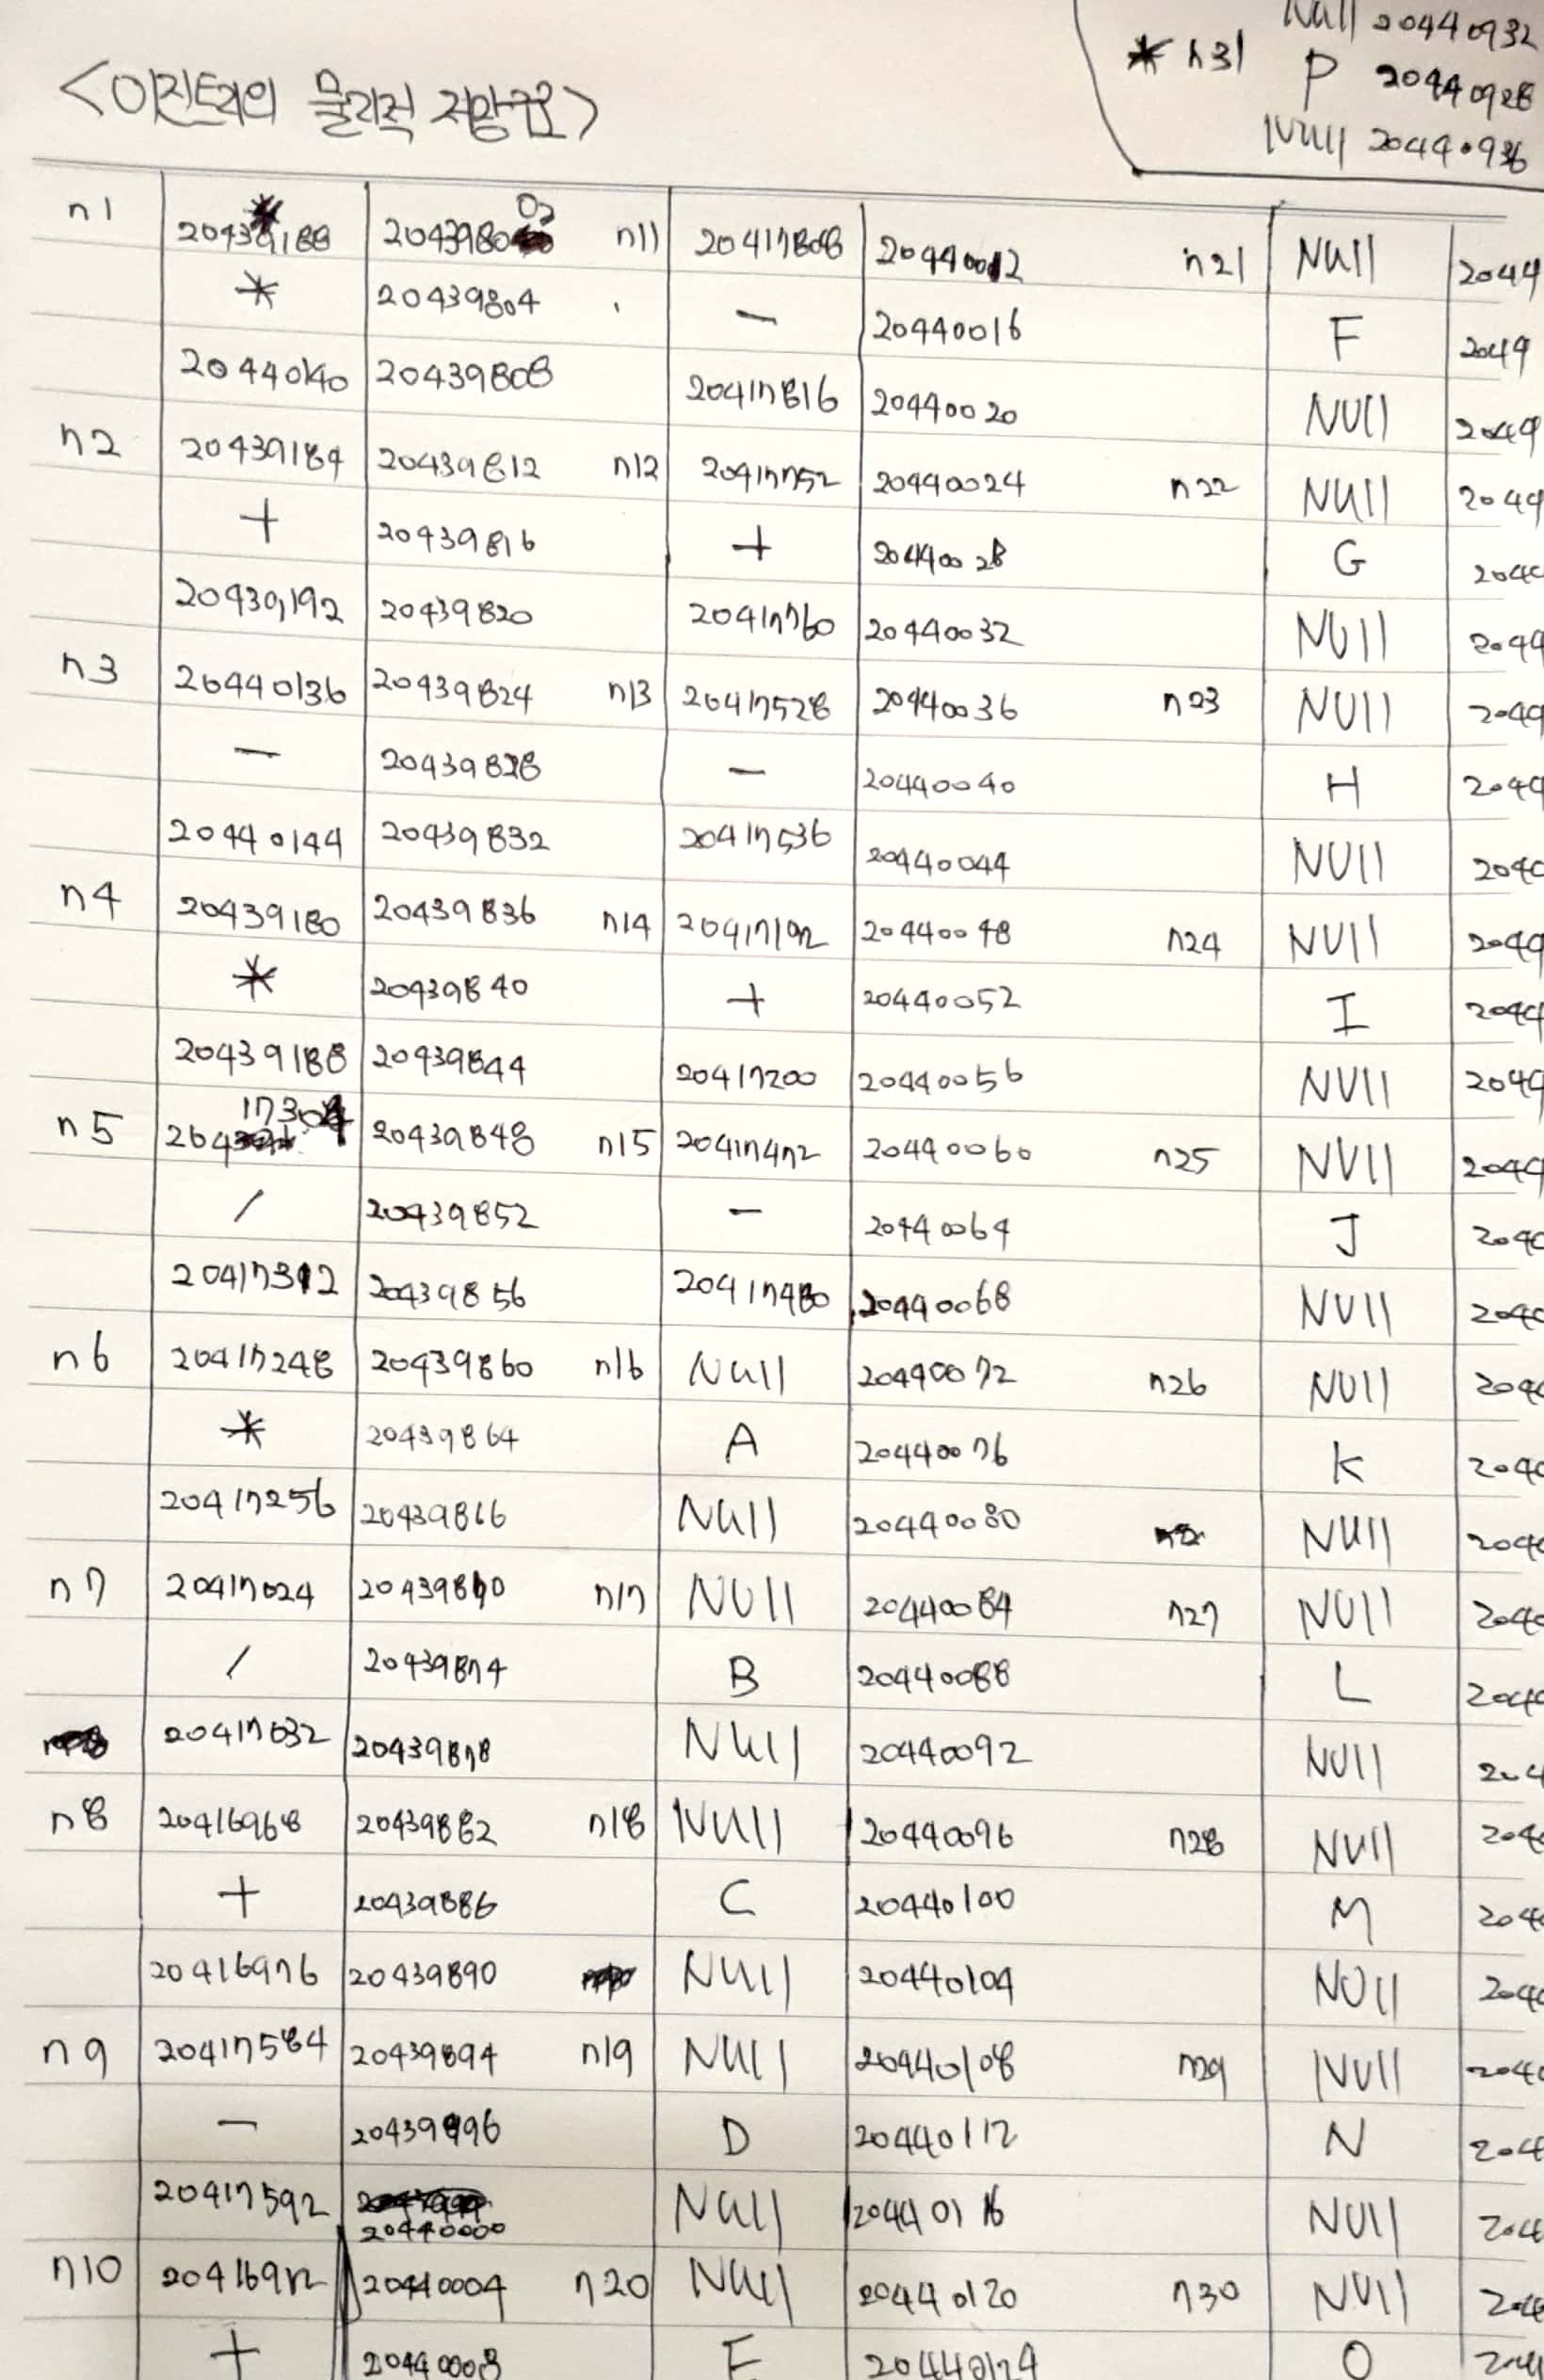 Null 20440932
* n31 P 20440928
Null 20440936
<이진트리의 물리적 저장구조>
n1 20439188 204398 n11 20417808 20440012 n21 Null 2044
* 20439804 - 20440016 F 2049
20440140 20439808 20417816 20440020 NUll 2049
n2 20439184 20439812 n12 20417752 20440024 n22 NUll 2049
+ 20439816 + 20440028 G 204
20439192 20439820 20417760 20440032 NUll 2044
n3 20440136 20439824 n13 20417528 20440036 n23 NUll 2049
- 20439828 - 20440040 H 2049
20440144 20439832 20417536 20440044 NUll 204
n4 20439180 20439836 n14 20417192 20440048 n24 NUll 2049
* 20439840 + 20440052 I 2044
20439188 20439844 20417200 20440056 NUll 2049
n5 20417304 20439848 n15 20417472 20440060 n25 NUll 2044
/ 20439852 - 20440064 J 204
20417312 20439856 20417480 20440068 NUll 204
n6 20417248 20439860 n16 Null 20440072 n26 NUll 204
* 20439864 A 20440076 K 204
20417256 20439866 Null 20440080 NUll 204
n7 20417024 20439870 n17 NUll 20440084 n27 NUll 204
/ 20439874 B 20440088 L 204
20417032 20439878 NUll 20440092 NUll 204
n8 20416968 20439882 n18 NUll 20440096 n28 NUll 204
+ 20439886 C 20440100 M 204
20416976 20439890 NUll 20440104 NUll 204
n9 20417584 20439894 n19 NUll 20440108 n29 NUll 204
- 20439896 D 20440112 N 204
20417592 20440000 Null 20440116 NUll 204
n10 20416912 20440004 n20 NUll 20440120 n30 NUll 204
+ 20440008 E 20440124 O 204